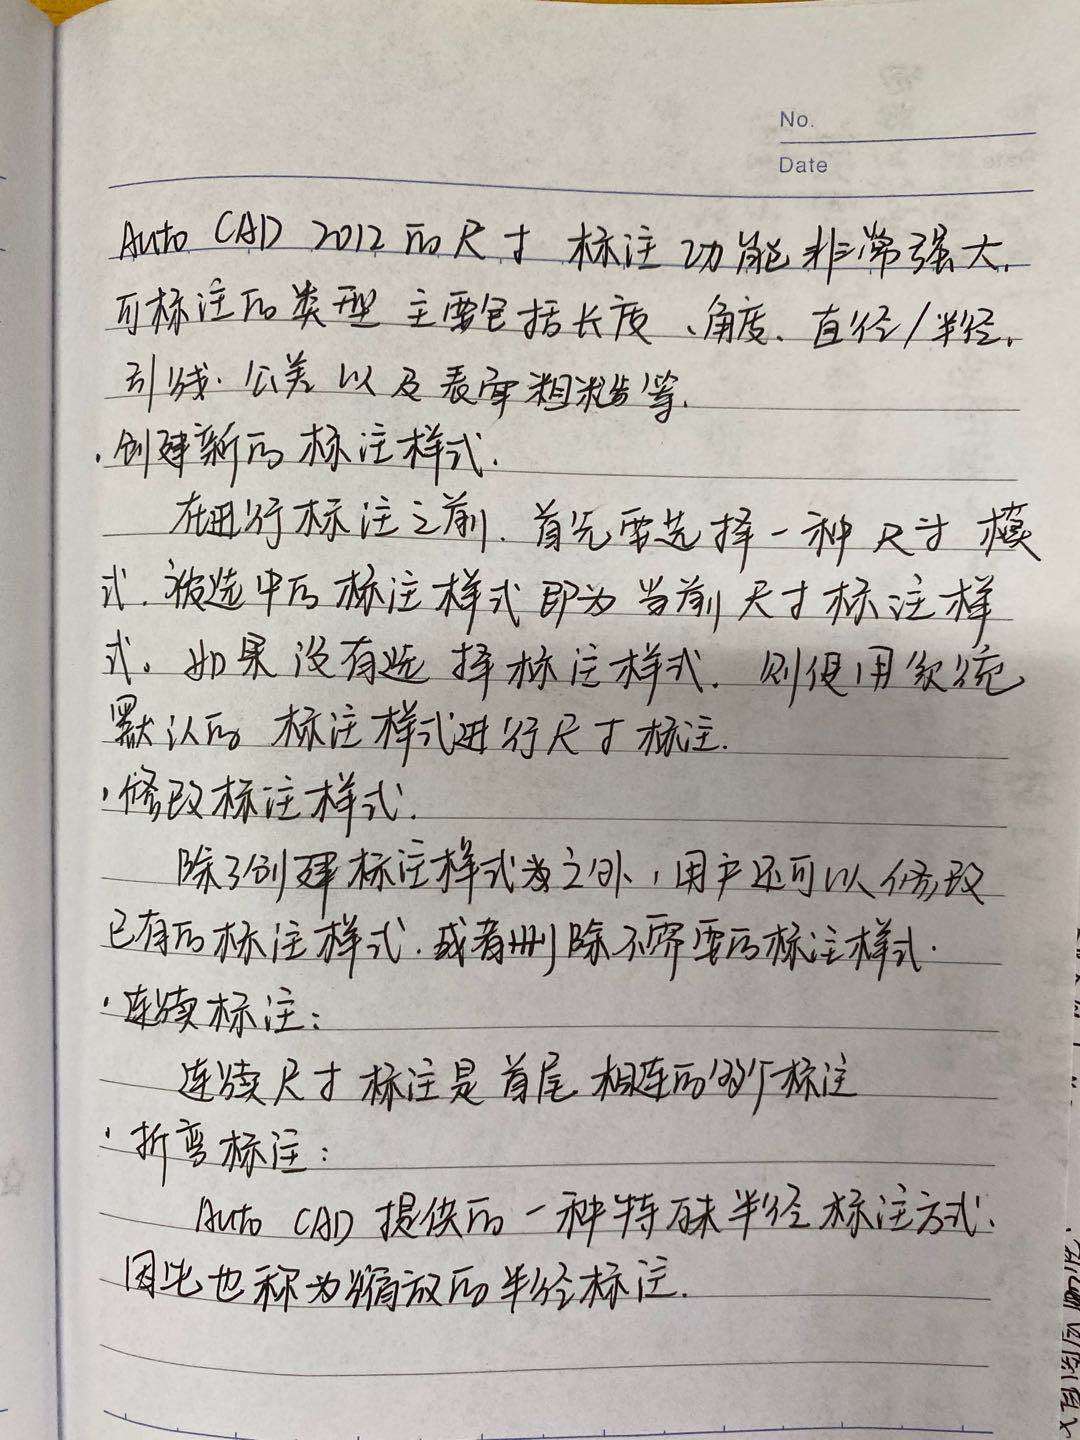 No.
Date
Auto CAD 2012的尺寸标注功能非常强大.
可标注的类型主要包括长度、角度、直径/半径.
引线.公差以及表面粗糙等.
·创建新的标注样式.
在进行标注之前.首先要选择一种尺寸模
式.被选中的标注样式即为当前尺寸标注样
式。如果没有选择标注样式.则使用系统
默认的标注样式进行尺寸标注.
·修改标注样式.
除了创建标注样式之外,用户还可以修改
已有的标注样式.或者删除不需要的标注样式.
·连续标注:
连续尺寸标注是首尾相连的多个标注
·折弯标注:
Auto CAD提供的一种特殊半径标注方式.
因此也称为缩放的半径标注.